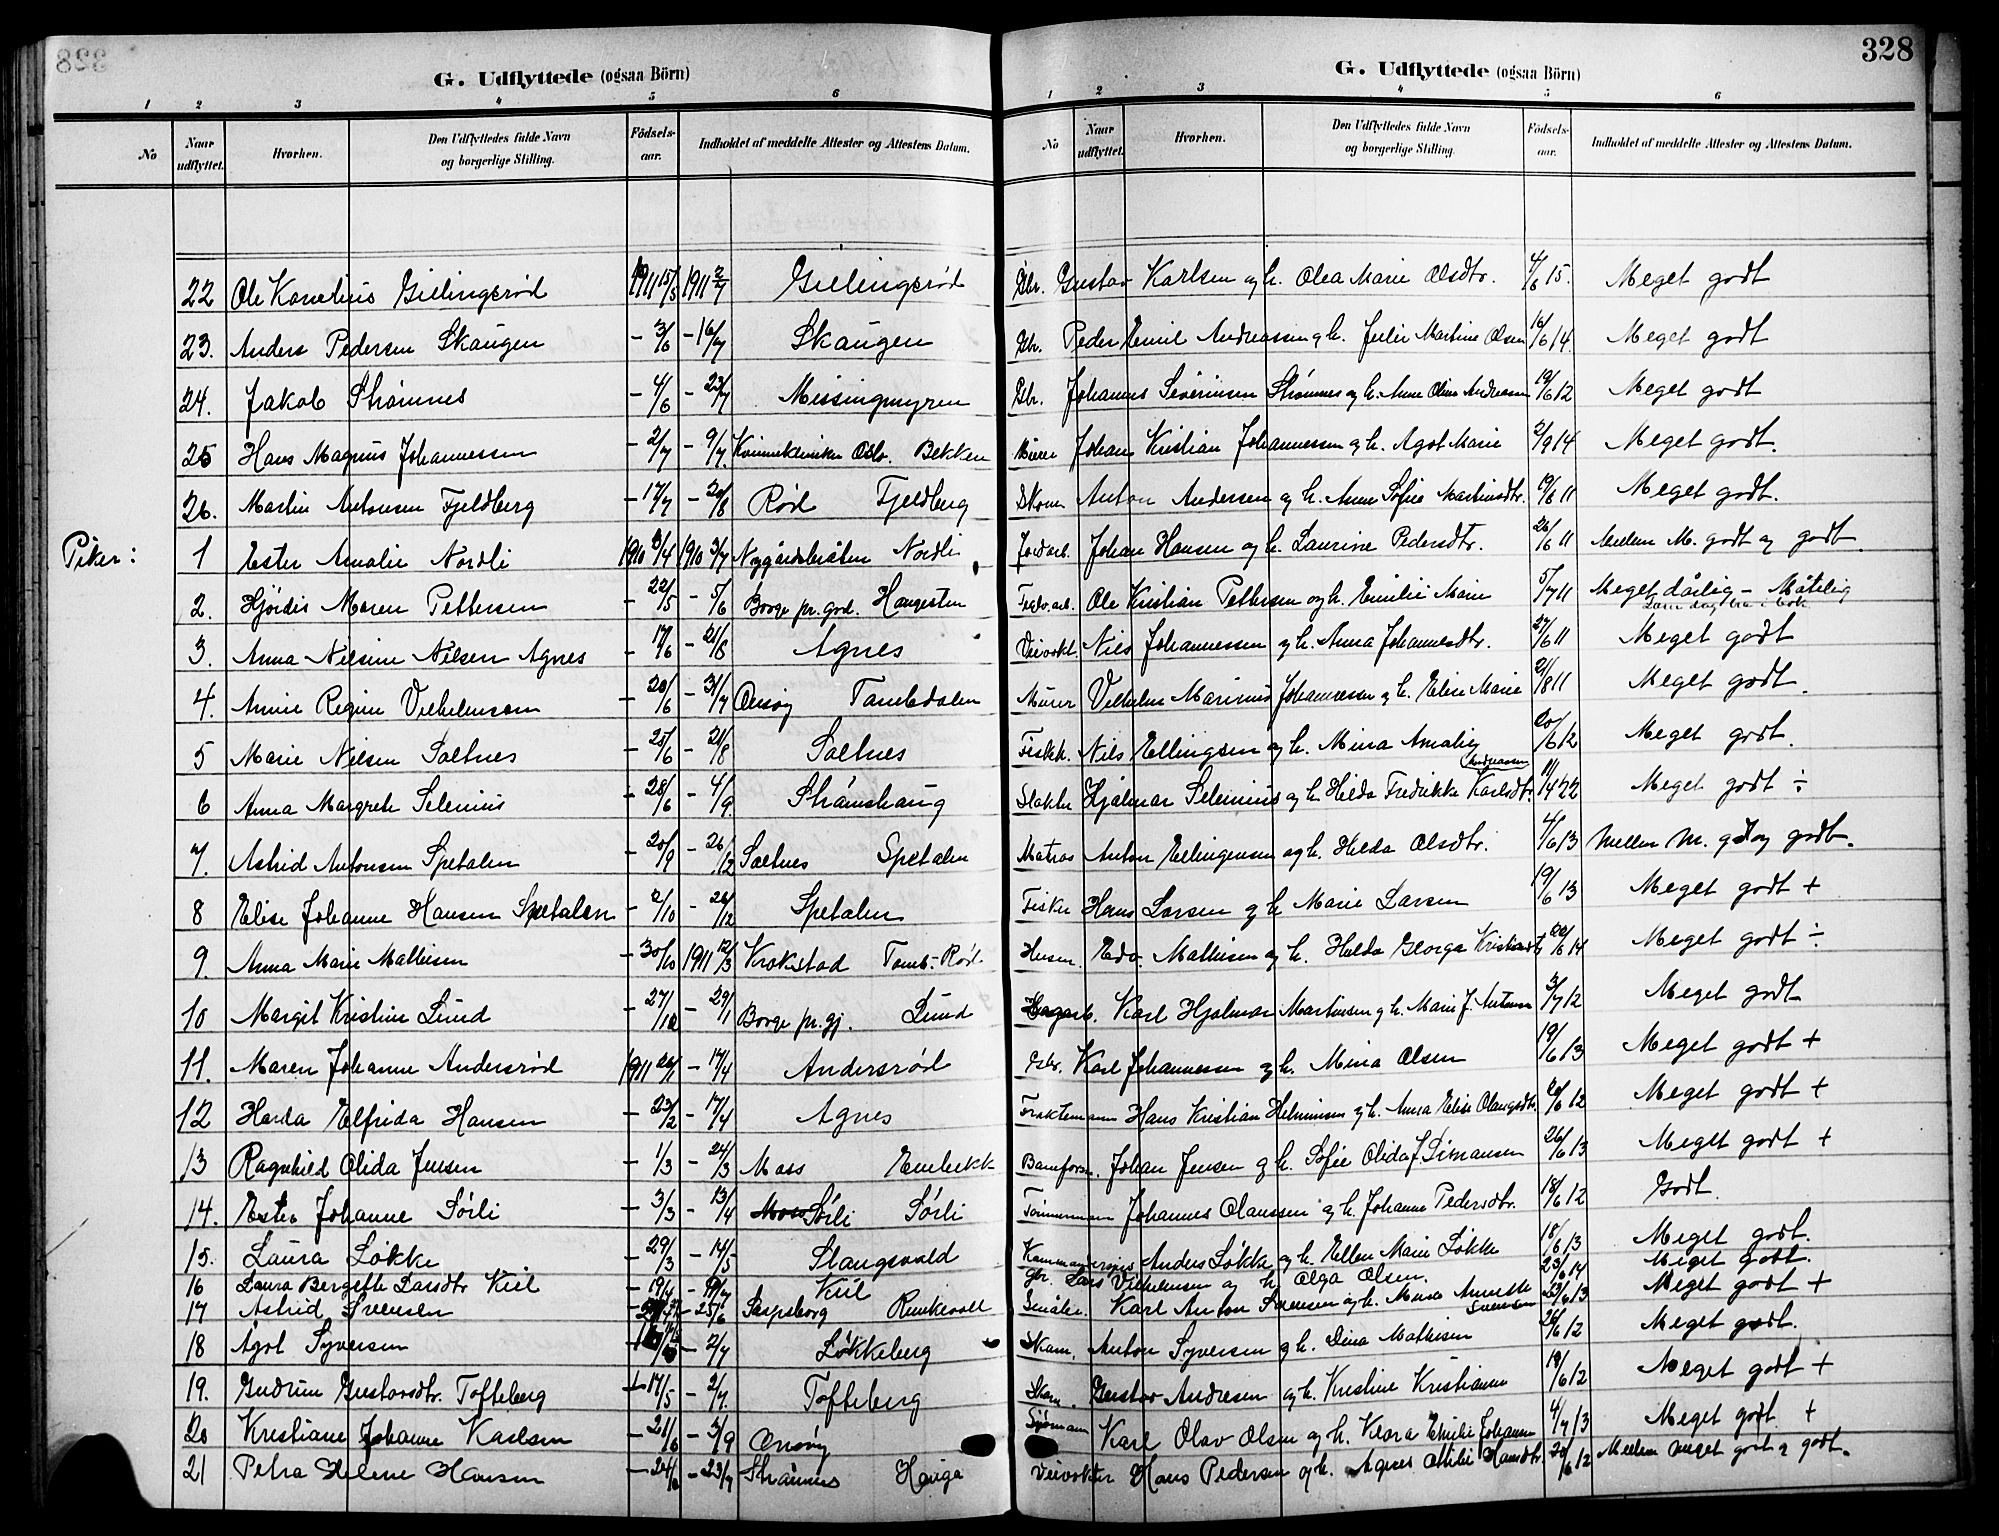 328
G. Udflyttede (ogsaa Börn)
1 2 3 4 5 6
No Naar udflyttet. Hvorhen. Den Udflyttedes fulde Navn og borgerlige Stilling. Födsels-aar. Indholdet af meddelte Attester og Attestens Datum.
22 Ole Kornelius Gillingsrød 1911 15/5 1911 2/7 Gillingsrød
23. Anders Pedersen Skaugen - 3/6 - 16/7 Skaugen
24. Jakob Strømnes - 4/6 - 23/7 Missingmyren
25 Hans Magnus Johannessen - 2/7 - 9/7 Kvinneklinikken Oslo. Bekken
26. Martin Antonsen Fjeldberg - 17/7 - 20/8 Rød Fjeldberg
Piker:
1 Ester Amalie Nordli 1910 3/4 1910 3/7 Nygårdsbråten Nordli
2. Hjørdis Maren Pettersen - 22/5 - 5/6 Borge pr. god. Haugesten
3. Anna Nilsine Nilsen Agnes - 17/6 - 21/8 Agnes
4. Anne Regine Vilhelmsen - 20/6 - 31/7 Onsøy Tambedalen
5 Marie Nilsen Saltnes - 25/6 - 21/8 Saltnes
6 Anna Margrete Selenius - 28/6 - 4/9. Strømshaug
7. Astrid Antonsen Spetalen - 20/9 - 26/12 Saltnes Spetalen
8 Elise Johanne Hansen Spetalen - 2/10 - 26/12 Spetalen
9 Anna Marie Mathisen - 30/10 1911 12/3 Krokstad Tomb-Rød.
10 Margit Kristine Lund - 27/12 - 29/1 Borge pr. gj. Lund
11. Maren Johanne Andersrød 1911 20/1 - 17/4 Andersrød
12 Harda Elfrida Hansen - 23/2 - 17/4 Agnes
13 Ragnhild Olida Jensen - 1/3 - 24/3 Moss Enebekk
14. Ester Johanne Sørli - 3/3 - 13/4 Moss Sørli Sørli
15. Laura Løkke - 29/3 - 14/5 Slangsvold
16 Laura Bergette Larsdtr Kiil - 19/4 Kiil
17 Astrid Svensen - 25/6 Sarpsborg Runkevoll
18 Agot Syversen - 2/7 Løkkeberg
19. Gudrun Gustavsdtr. Tofteberg - 17/5 - 2/7. Tofteberg
20 Kristiane Johanne Karlsen - 21/6 - 3/9 Onsøy
21 Petra Helene Hansen - 24/6 - 23/7 Strømnes Hauge
328
G. Udflyttede (ogsaa Börn)
1 2 3 4 5 6
No Naar udflyttet. Hvorhen. Den Udflyttedes fulde Navn og borgerlige Stilling. Födsels-aar. Indholdet af meddelte Attester og Attestens Datum.
Gbr. Gustav Karlsen og h. Olea Marie Olsdtr. 4/6 15. Meget godt
Gbr. Peder Emil Andreassen og h. Julie Martine Olsen 16/6 14. Meget godt
Gbr. Johannes Severinsen Strømnes og h. Anne Oline Andreasen 19/6 12 Meget godt
Murer Johan Kristian Johannessen og h. Agot Marie 2/9 14 Meget godt.
Skom Anton Andersen og h. Anne Sofie Martinsdtr. 19/6 11 Meget godt.
Jordarb. Johan Hansen og h. Laurine Pedersdtr. 26/6 11 Mellem M. godt og godt.
Ole Kristian Pettersen og h. Emilie Marie 5/7 11 Meget dårlig - Måtelig
Veivokt. Nils Johannessen og h. Anna Johannesdtr. 27/6 11 Meget godt
Murer Vilhelm Marinius Johannessen og h. Elise Marie 21/8 11 Meget godt.
Fisk. Nils Ellingsen og h. Mina Amalie Andreassen 20/6 12 Meget godt.
Slakter Hjalmar Selenius og h. Hilda Fredrikke Karlsdtr. 11/4 22 Meget godt ÷
Matros Anton Ellingensen og h. Hilda Olsdtr. 4/6 13 Mellem M. g. og godt.
Fisker Hans Larsen og h. Marie Larsen 19/6 13 Meget godt +
Husm. Edv. Mathisen og h. Hilda Georga Kristiansdtr 20/6 14 Meget godt ÷
Karl Hjalmar Martinsen og h. Marie J. Antonsen 3/7 12 Meget godt
Gbr. Karl Johannessen og h. Mina Olsen 19/6 13 Meget godt +
Fraktemann Hans Kristian Helminsen og h. Anna Elise Olaugsdtr. 20/6 12 Meget godt +
Baneform. Johan Jensen og h. Sofie Olida J. Simansen 26/6 13 Meget godt +
Tømmermann Johannes Olaussen og h. Johanne Pedersdtr. 18/6 12 Godt.
Anders Løkke og h. Ellen Marie Løkke 18/6 13 Meget godt.
Gbr. Lars Vilhelmsen og h. Olga Olsen. 23/6 14 Meget godt.
Småbr. Karl Anton Svensen og h. Mina Annette Svensen 23/6 13 Meget godt +
Skom. Anton Syversen og h. Dina Mathisen 26/6 12 Meget godt.
Skom. Gustav Andresen og h. Kristine Kristianne 18/6 12 Meget godt +
Sjømann Karl Olav Olsen og h. Klara Emilie Johansen 4/7 13 Meget godt. +
Veivokter Hans Pedersen og h. Agnes Otilie Hansdtr. 20/6 12 Mellem meget godt og godt.